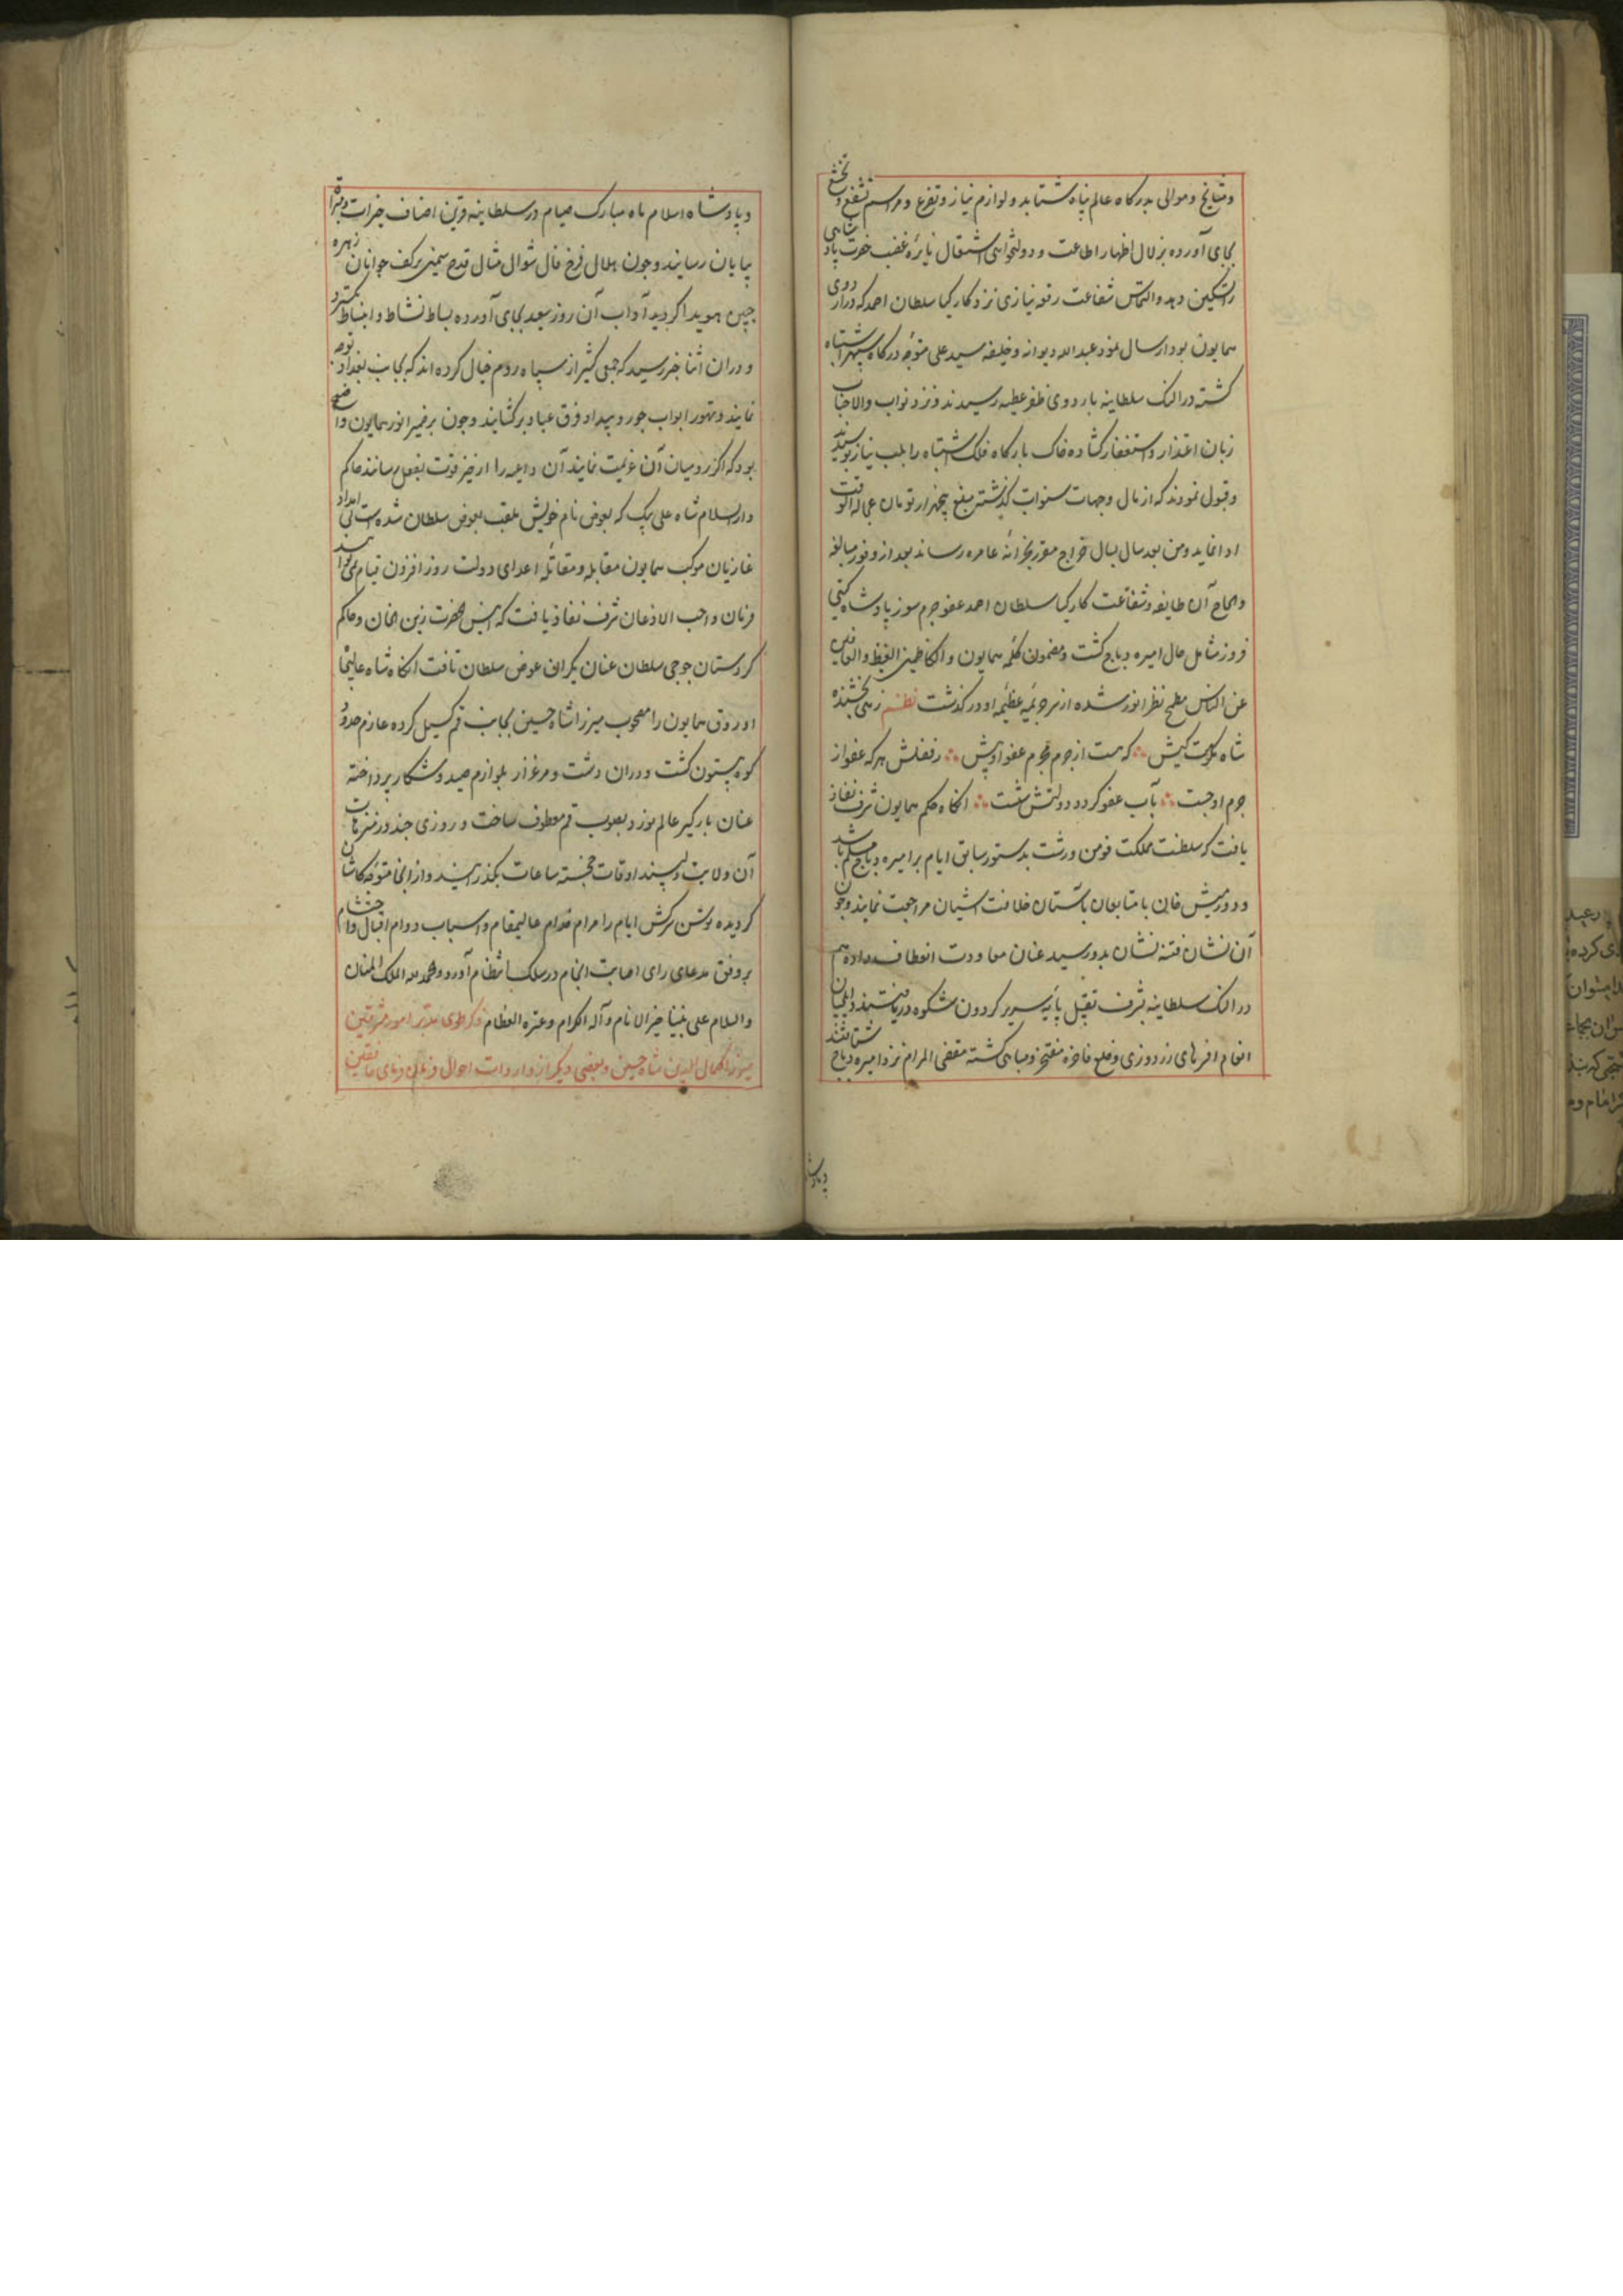 و مشایخ و موالی بدرکاه عالم پناه شتابد و لوازم نیاز و تضرع و مراسم تشفع و تخشع
بجای آورده بزلال اظهار اطاعت و دولتخواهی اشتعال نایرهٔ غضب حضرت پادشاهی
را تسکین دهد و التماس شفاعت رقعه نیازی نزد کارکیا سلطان احمد که در اردوی
همایون بود ارسال نمود عبد الله دیوانه و خلیفه سید علی متوجه درکاه سپهر اشتباه
کشته در النک سلطانیه باردوی ظفر عطیه رسیدند و نزد نواب والا جناب
زبان اعتذار و استغفار کشاده خاک بارکاه فلک اشتباه را بلب نیاز بوسیدند
و قبول نمودند که از مال و جهات سنوات کذشته مبلغ پنجهزار تومان عجالة الوقت
ادا نماید و من بعد سال بسال خراج مقرر بخزانه عامره رساند بعد از وفور مبالغه
و الحاح آن طایفه و شفاعت کارکیا سلطان احمد عفو جرم سوز پادشاه کیتی
فروز شامل حال امیره دباج کشت و مضمون کلمه همایون و الکاظمین الغیظ و العافین
عن الناس مطمح نظر انور شده از سر جریمه عظیمه او در کذشت نظم زهی بخشنده
شاه مکرمت کیش ؞ که هست از جرم مجرم عفو او پیش ؞ ز فضلش هر که عفو از
جرم او جست ؞ بآب عفو کرد دولتش شست ؞ انکاه حکم همایون شرف نفاذ
یافت که سلطنت مملکت فومن و رشت بدستور سابق ایام بر امیره دباج مسلم باشد
و دورمیش خان با متابعان بآستان خلافت آشیان مراجعت نمایند و چون
آن نشان فتنه نشان بدو رسید عنان معاودت انعطاف داده هم
در النک سلطانیه بشرف تقبیل پایهٔ سریر کردون شکوه دریافتند و ایلچیان
انعام افرهای زردوزی و خلع فاخره مفتخر و مباهی کشته مقضی المرام نزد امیره دباج شتافتند
و پادشاه
و پادشاه اسلام ماه مبارک صیام در سلطانیه قرین اصناف خیرات و مبرات
بپایان رسانید و چون هلال فرخ فال شوال مثال قدح سیمین بر کف جوانان زهره
جبین هویدا کردید آداب آن روز سعید بجای آورده بساط نشاط و انبساط بکسترد
و در ان اثنا خبر رسید که جمعی کثیر از سپاه روم خیال کرده اند که بجانب بغداد توجه
نمایند و بتهور ابواب جور و بیداد فرق عباد برکشایند و چون بر ضمیر انور همایون واضح
بود که اکر رومیان آن عزیمت نمایند آن داعیه را از حیز قوت بفعل رسانند حاکم
دار السلام شاه علی بیک که بعوض نام خویش ملقب بعوض سلطان شده است بی امداد
غازیان موکب همایون مقابله و مقاتلهٔ اعدای دولت روز افزون قیام نمی تواند
فرمان واجب الاذعان شرف نفاذ یافت که
کردستان جوجی سلطان عنان یکران عوض سلطان تافت انکاه شاه عالیجاه
اوروق همایون را مصحوب میرزا شاه حسین بجانب قم کسیل کرده عازم حدود
کوه بیستون کشت و در ان دشت و مرغزار بلوازم صید و شکار پرداخته
عنان بارکیر عالم نورد بصوب قم معطوف ساخت و روزی چند در منتزهات
آن ولایت دلپسند اوقات خجسته ساعات بکذرانید و از انجا متوجه کاشان
کردیده توسن سرکش ایام را مرام خدام عالیمقام و اسباب دوام اقبال و احتشام
بر وفق مدعای رای اصابت انجام در سلک انتظام آورد و الحمد لله الملک المنان
و السلام علی نبینا خیر الانام و آله الکرام و عتره العظام ذکر طوی مدبر امور مشرقین
میرزا کمال الدین شاه حسین و بعضی دیکر از واردات احوال